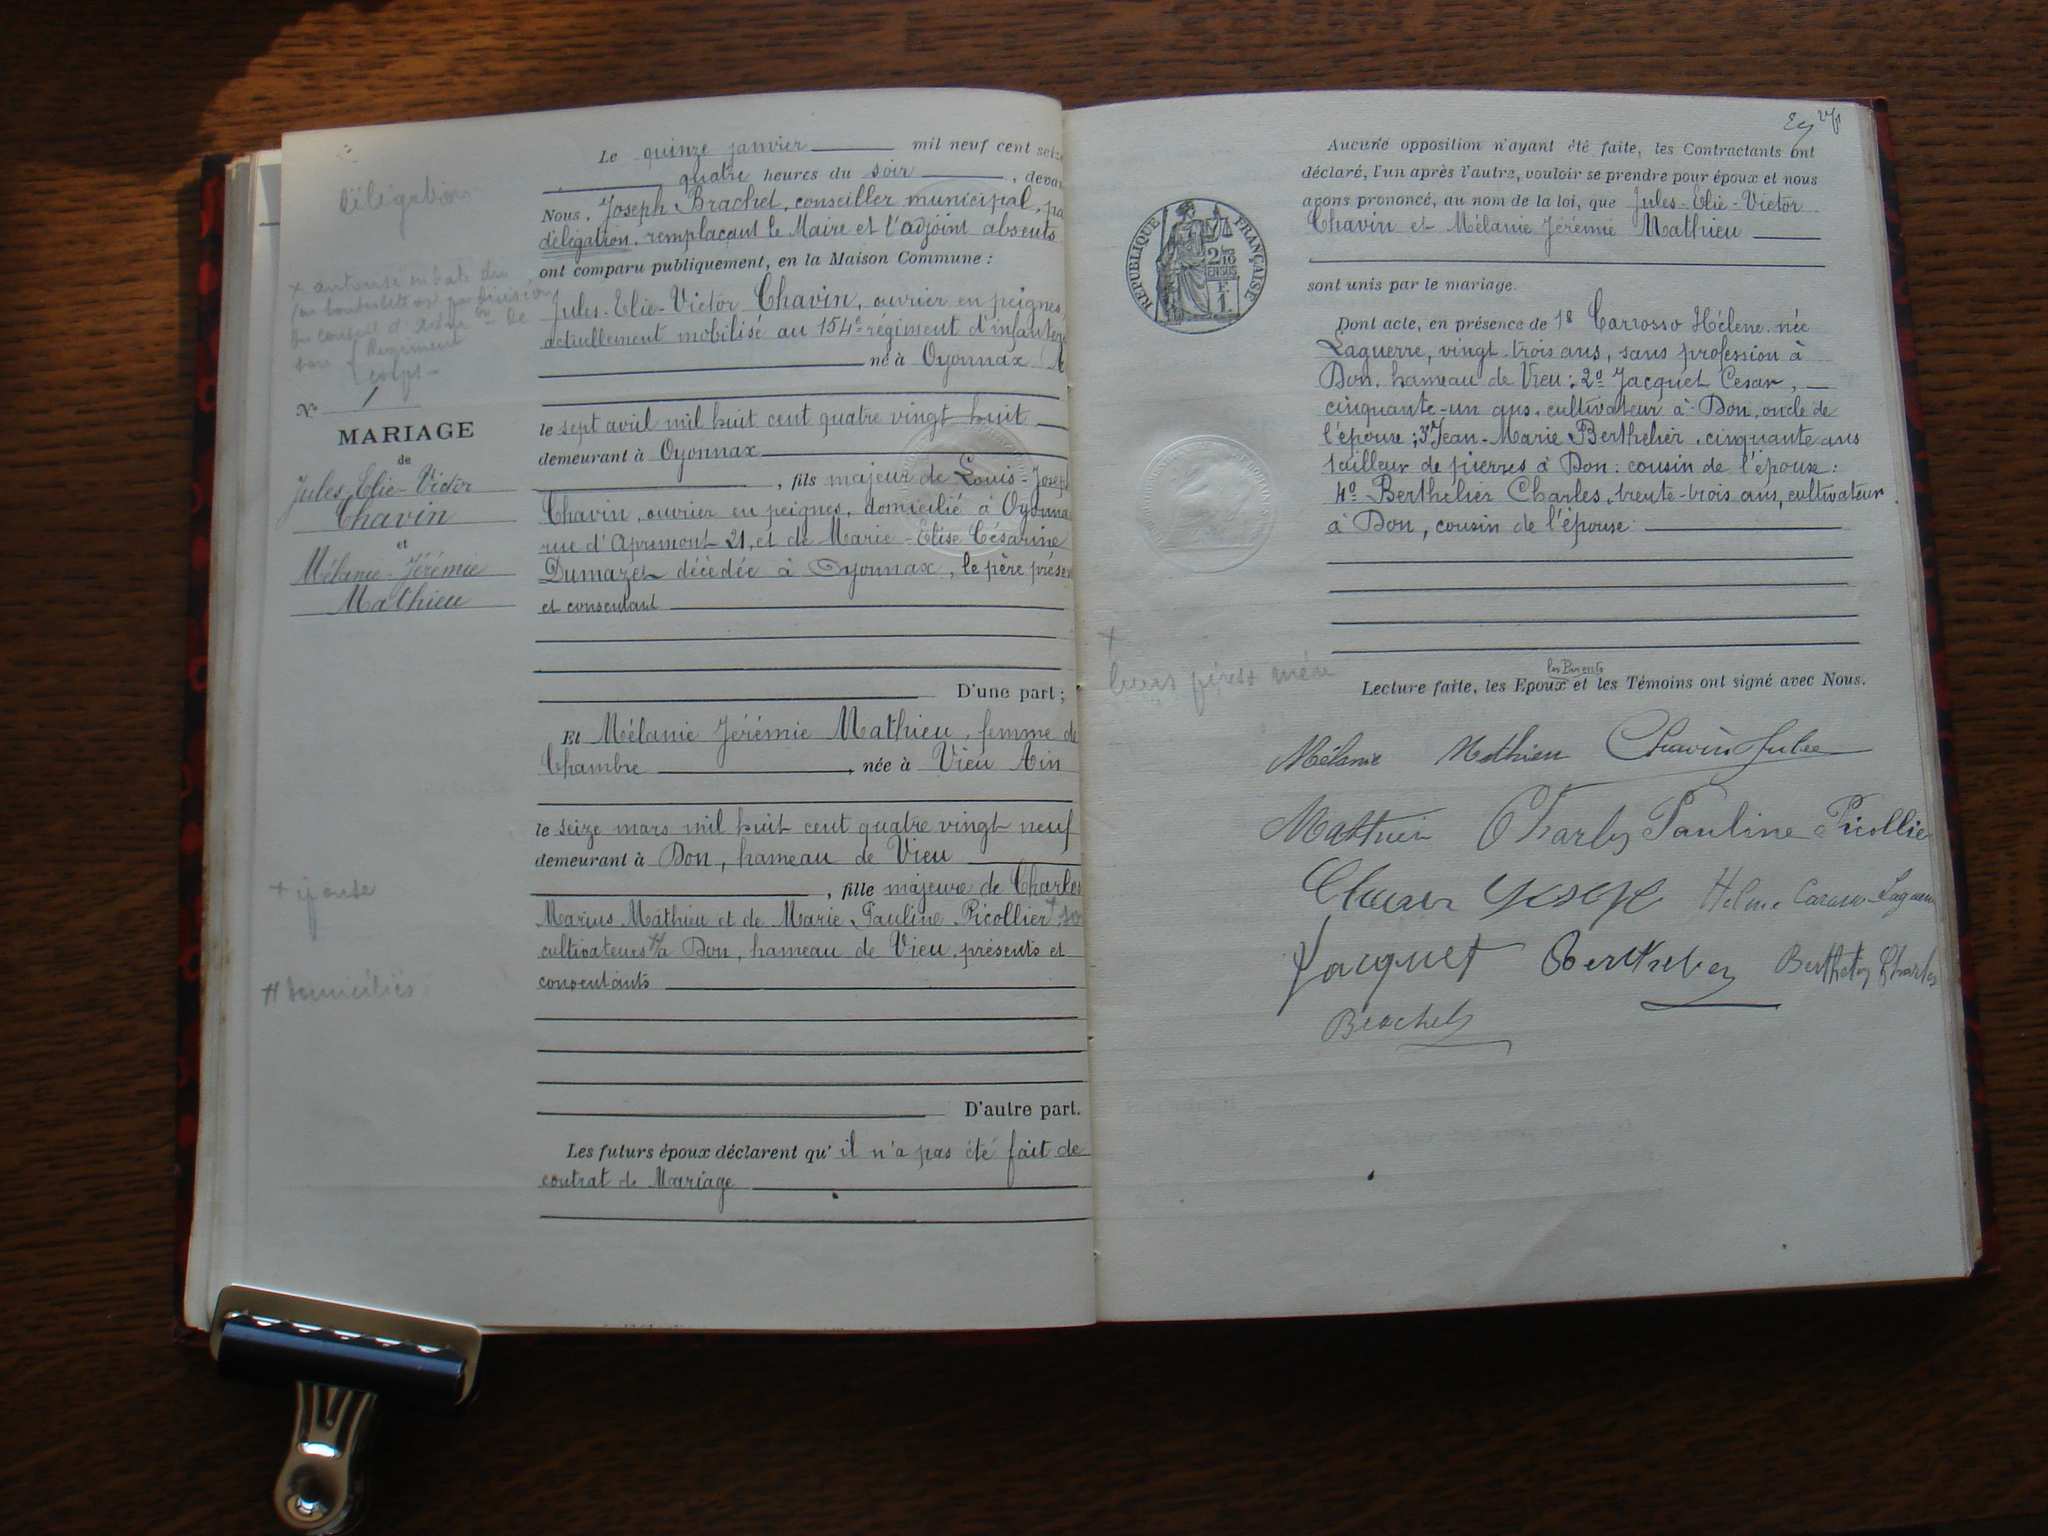 Délégation
+ autorisé en date du
par
du conseil d'Adm on de
son Régiment
corps
N° 1
MARIAGE
de
Jules, Elie-Victor
Chavin
et
Mélanie-Jérémie
Mathieu
+ épouse
# domiciliés
Le quinze janvier mil neuf cent seize
quatre heures du soir, devan
Nous, Joseph Brachet, conseiller municipal, pa
délégation, remplaçant le Maire et l'adjoint absents
ont comparu publiquement, en la Maison Commune :
Jules-Elie-Victor Chavin, ouvrier en peignes,
actuellement mobilisé au 154e régiment d'infanter
né à Oyonnax (A
le sept avril mil huit cent quatre vingt huit
demeurant à Oyonnax
, fils majeur de Louis-Joseph
Chavin, ouvrier en peignes, domicilié à Oyonna
rue d'Apremont 21, et de Marie-Elise Césarine
Dumazet décédée à Oyonnax, le père présen
et consentant
D'une part ;
Et Mélanie Jérémie Mathieu, femme de
Chambre, née à Vieu Ain
le seize mars mil huit cent quatre vingt neuf
demeurant à Don, hameau de Vieu
, fille majeure de Charles
Marius Mathieu et de Marie Pauline Picollier + so
cultivateurs # à Don, hameau de Vieu, présents et
consentants
D'autre part.
Les futurs époux déclarent qu'il n'a pas été fait de
contrat de Mariage
RÉPUBLIQUE FRANÇAISE
2/10
EN SUS
F.
1.
+
leurs père & mère
Aucune opposition n'ayant été faite, les Contractants ont
déclaré, l'un après l'autre, vouloir se prendre pour époux et nous
avons prononcé, au nom de la loi, que Jules-Elie-Victor
Chavin et Mélanie Jérémie Mathieu
sont unis par le mariage.
Dont acte, en présence de 1° Carrosso Hélène née
Laguerre, vingt-trois ans, sans profession à
Don, hameau de Vieu ; 2° Jacquet César,
cinquante-un ans, cultivateur à Don, oncle de
l'épouse ; 3° Jean-Marie Berthelier, cinquante ans
tailleur de pierres à Don, cousin de l'épouse :
4° Berthelier Charles, trente-trois ans, cultivateur
à Don, cousin de l'épouse
les Parents
Lecture faite, les Epoux et les Témoins ont signé avec Nous.
Mélanie Mathieu Chavin Jules
Mathieu Charles Pauline Picollier
Chavin Joseph Hélène Carrosso Laguerre
Jacquet Berthelier Berthelier Charles
Brachet